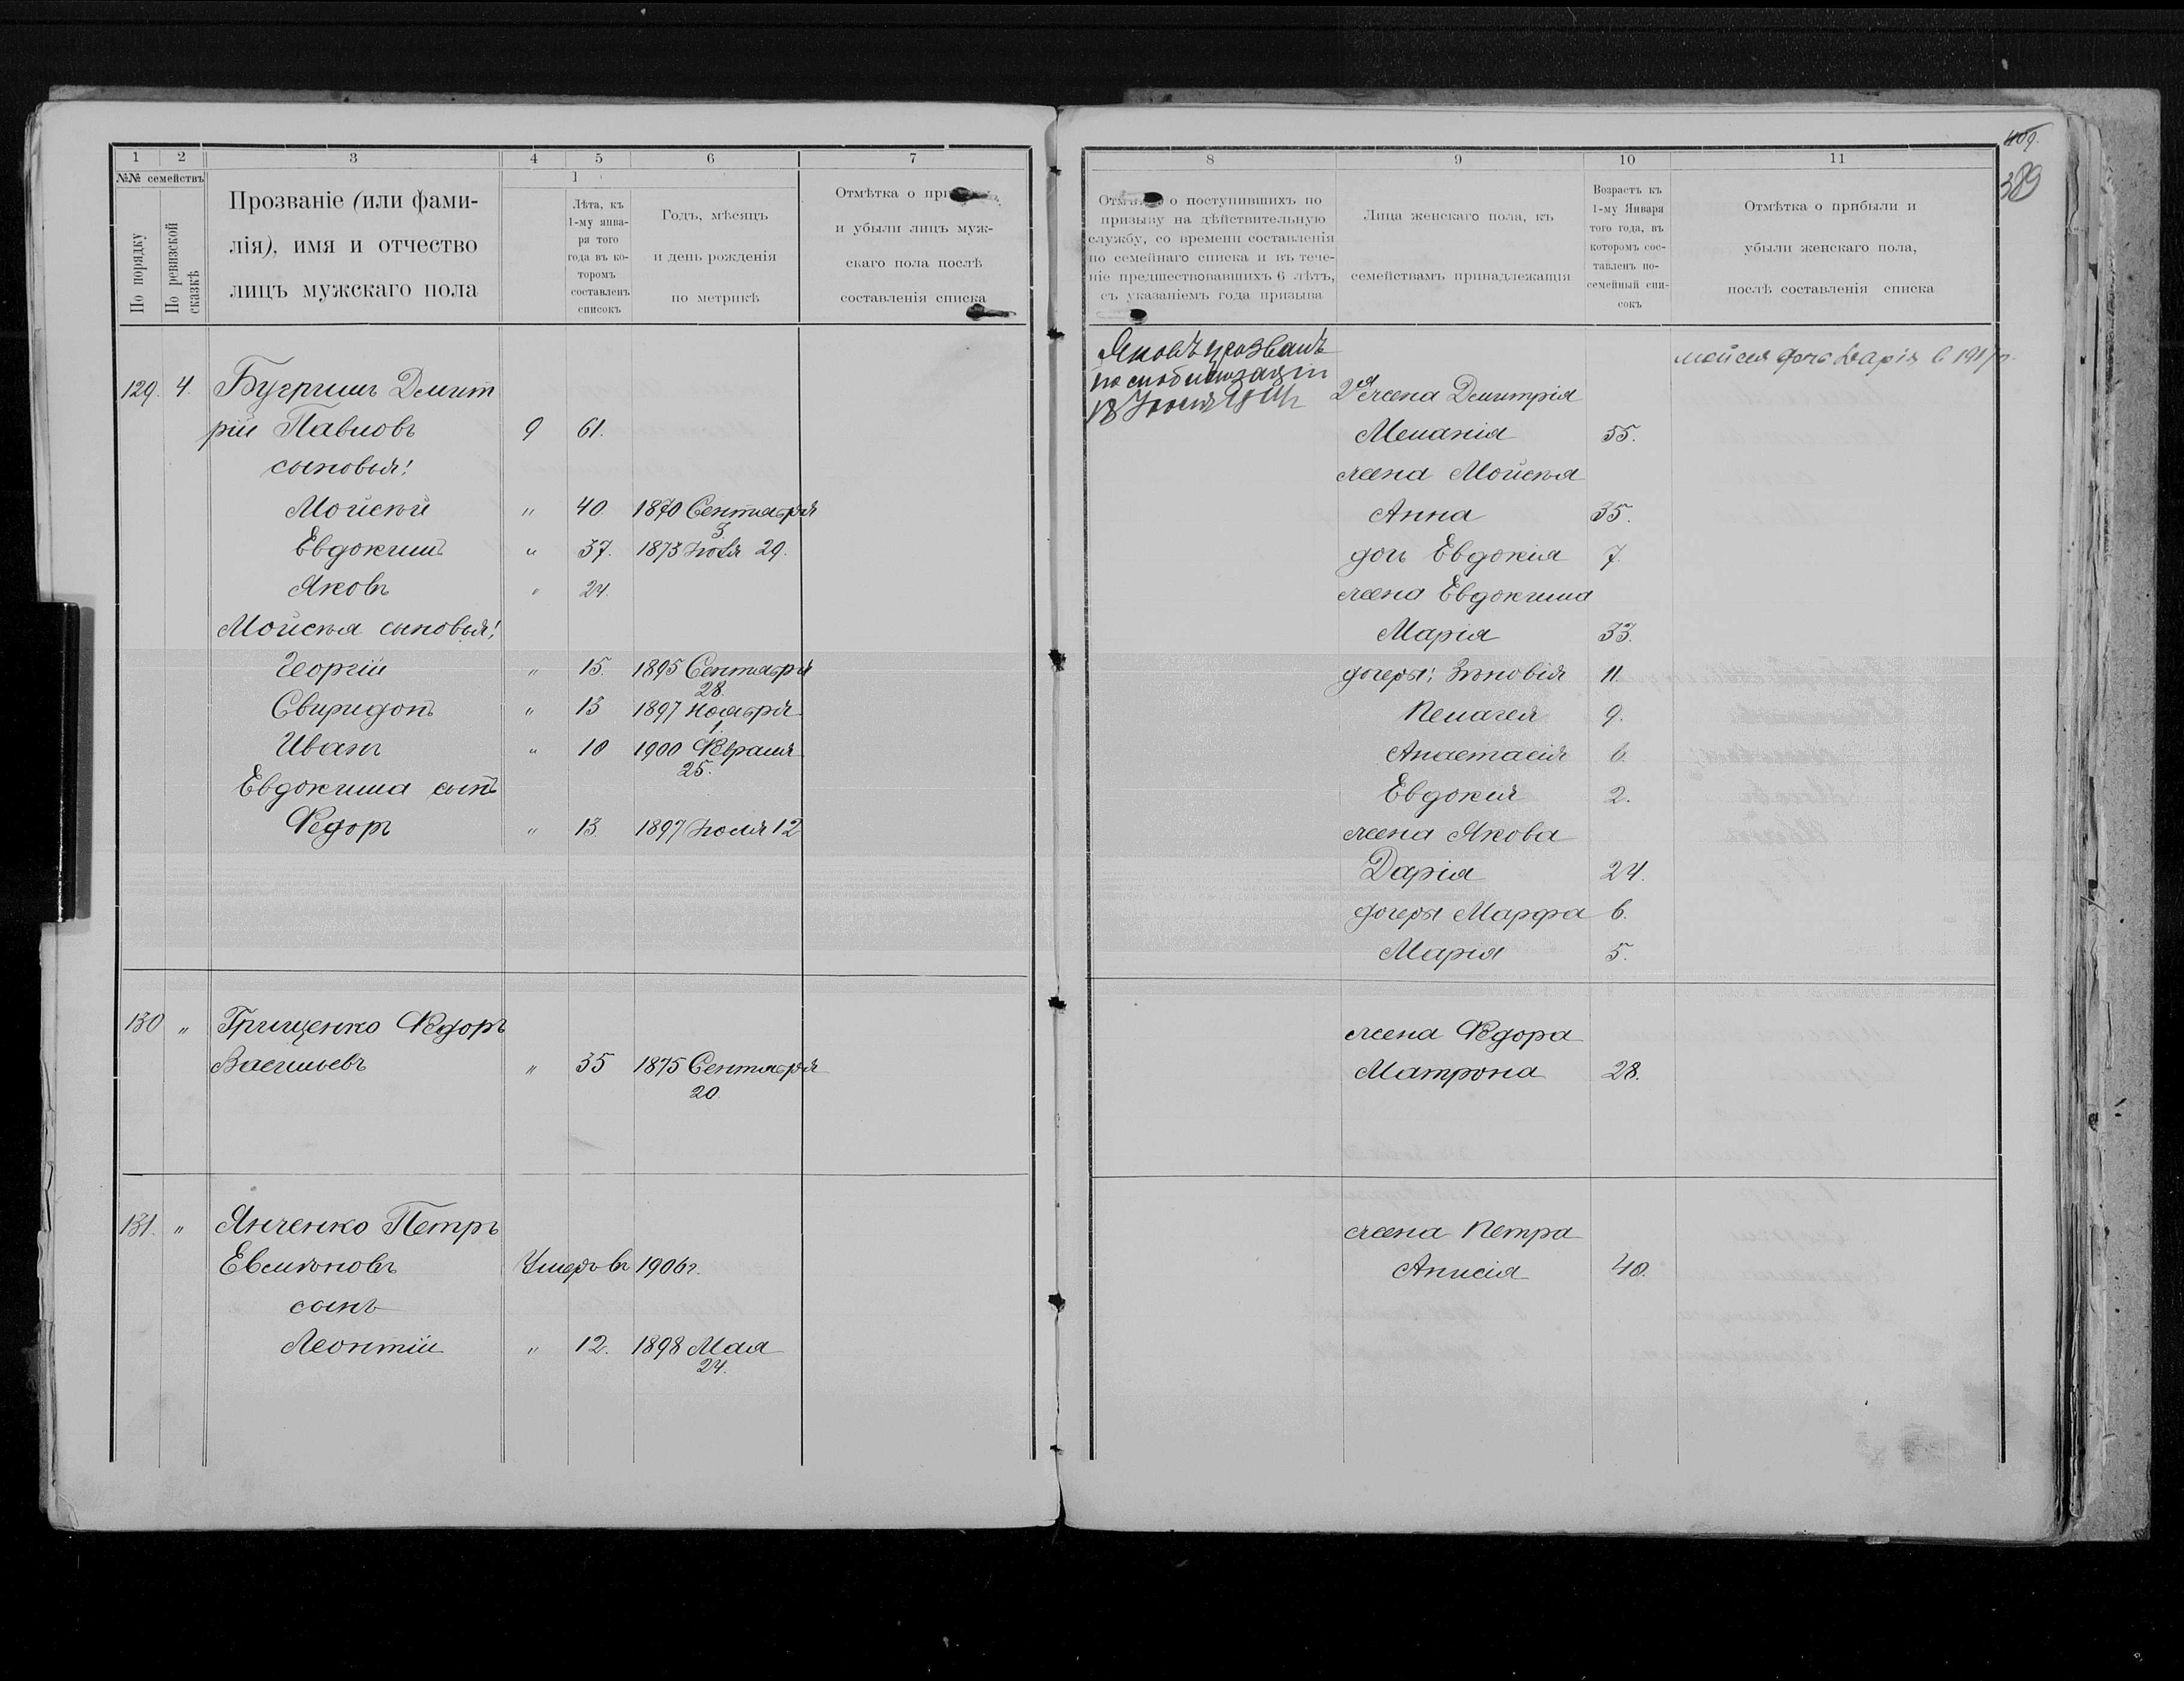 1 2 3 4 5 6 7
№№ семействъ
По порядку
По ревизской сказкѣ
Прозваніе (или фами-
лія), имя и отчество
лицъ мужскаго пола
1
Лѣта, къ
1-му янва-
ря того
года въ ко-
торомъ
составленъ
списокъ
Годъ, мѣсяцъ
и день рожденія
по метрикѣ
Отмѣтка о при
и убыли лицъ муж-
скаго пола послѣ
составленія списка
129. 4. Бугримъ Дмит
рій Павловъ 9 61.
сыновья:
Мойсѣй " 40 1870 Сентября
3
Евдокимъ " 37. 1873 Іюля 29.
Яковъ " 24.
Мойсѣя сыновья:
Георгій " 15. 1895 Сентября
28.
Свиридонъ " 13 1897 Ноября
1.
Иванъ " 10 1900 Февраля
25.
Евдокима сынъ
Федоръ " 13 1897 Іюля 12
130 " Грищенко Федоръ
Васильевъ " 35 1875 Сентября
20.
131. " Янченко Петръ
Евсигоновъ Умеръ въ 1906г.
сынъ
Леонтій " 12. 1898 Мая
24.
409.
389
8 9 10 11
о поступившихъ по
призыву на дѣйствительную
службу, со времени составленія
по семейнаго списка и въ тече-
ніе предшествовавшихъ 6 лѣтъ,
съ указаніемъ года призыва
Лица женскаго пола, къ
семействамъ принадлежащія
Возрастъ къ
1-му Января
того года, въ
которомъ сос-
тавленъ по-
семейный спи-
сокъ
Отмѣтка о прибыли и
убыли женскаго пола,
послѣ составленія списка
Яковъ призванъ
по мобилизаціи
18 Іюля 1914г
Мойсея дочь Дарія 1917г.
2я жена Дмитрія
Меланія 55.
жена Мойсѣя
Анна 35.
дочь Евдокія 7.
жена Евдокима
Марія 33.
дочеры: Зѣновія 11.
Пелагея 9.
Анастасія 6.
Евдокія 2.
жена Якова
Дарія 24.
дочеры Марфа 6.
Марія 5.
жена Федора
Матрона 28.
жена Петра
Анисія 40.